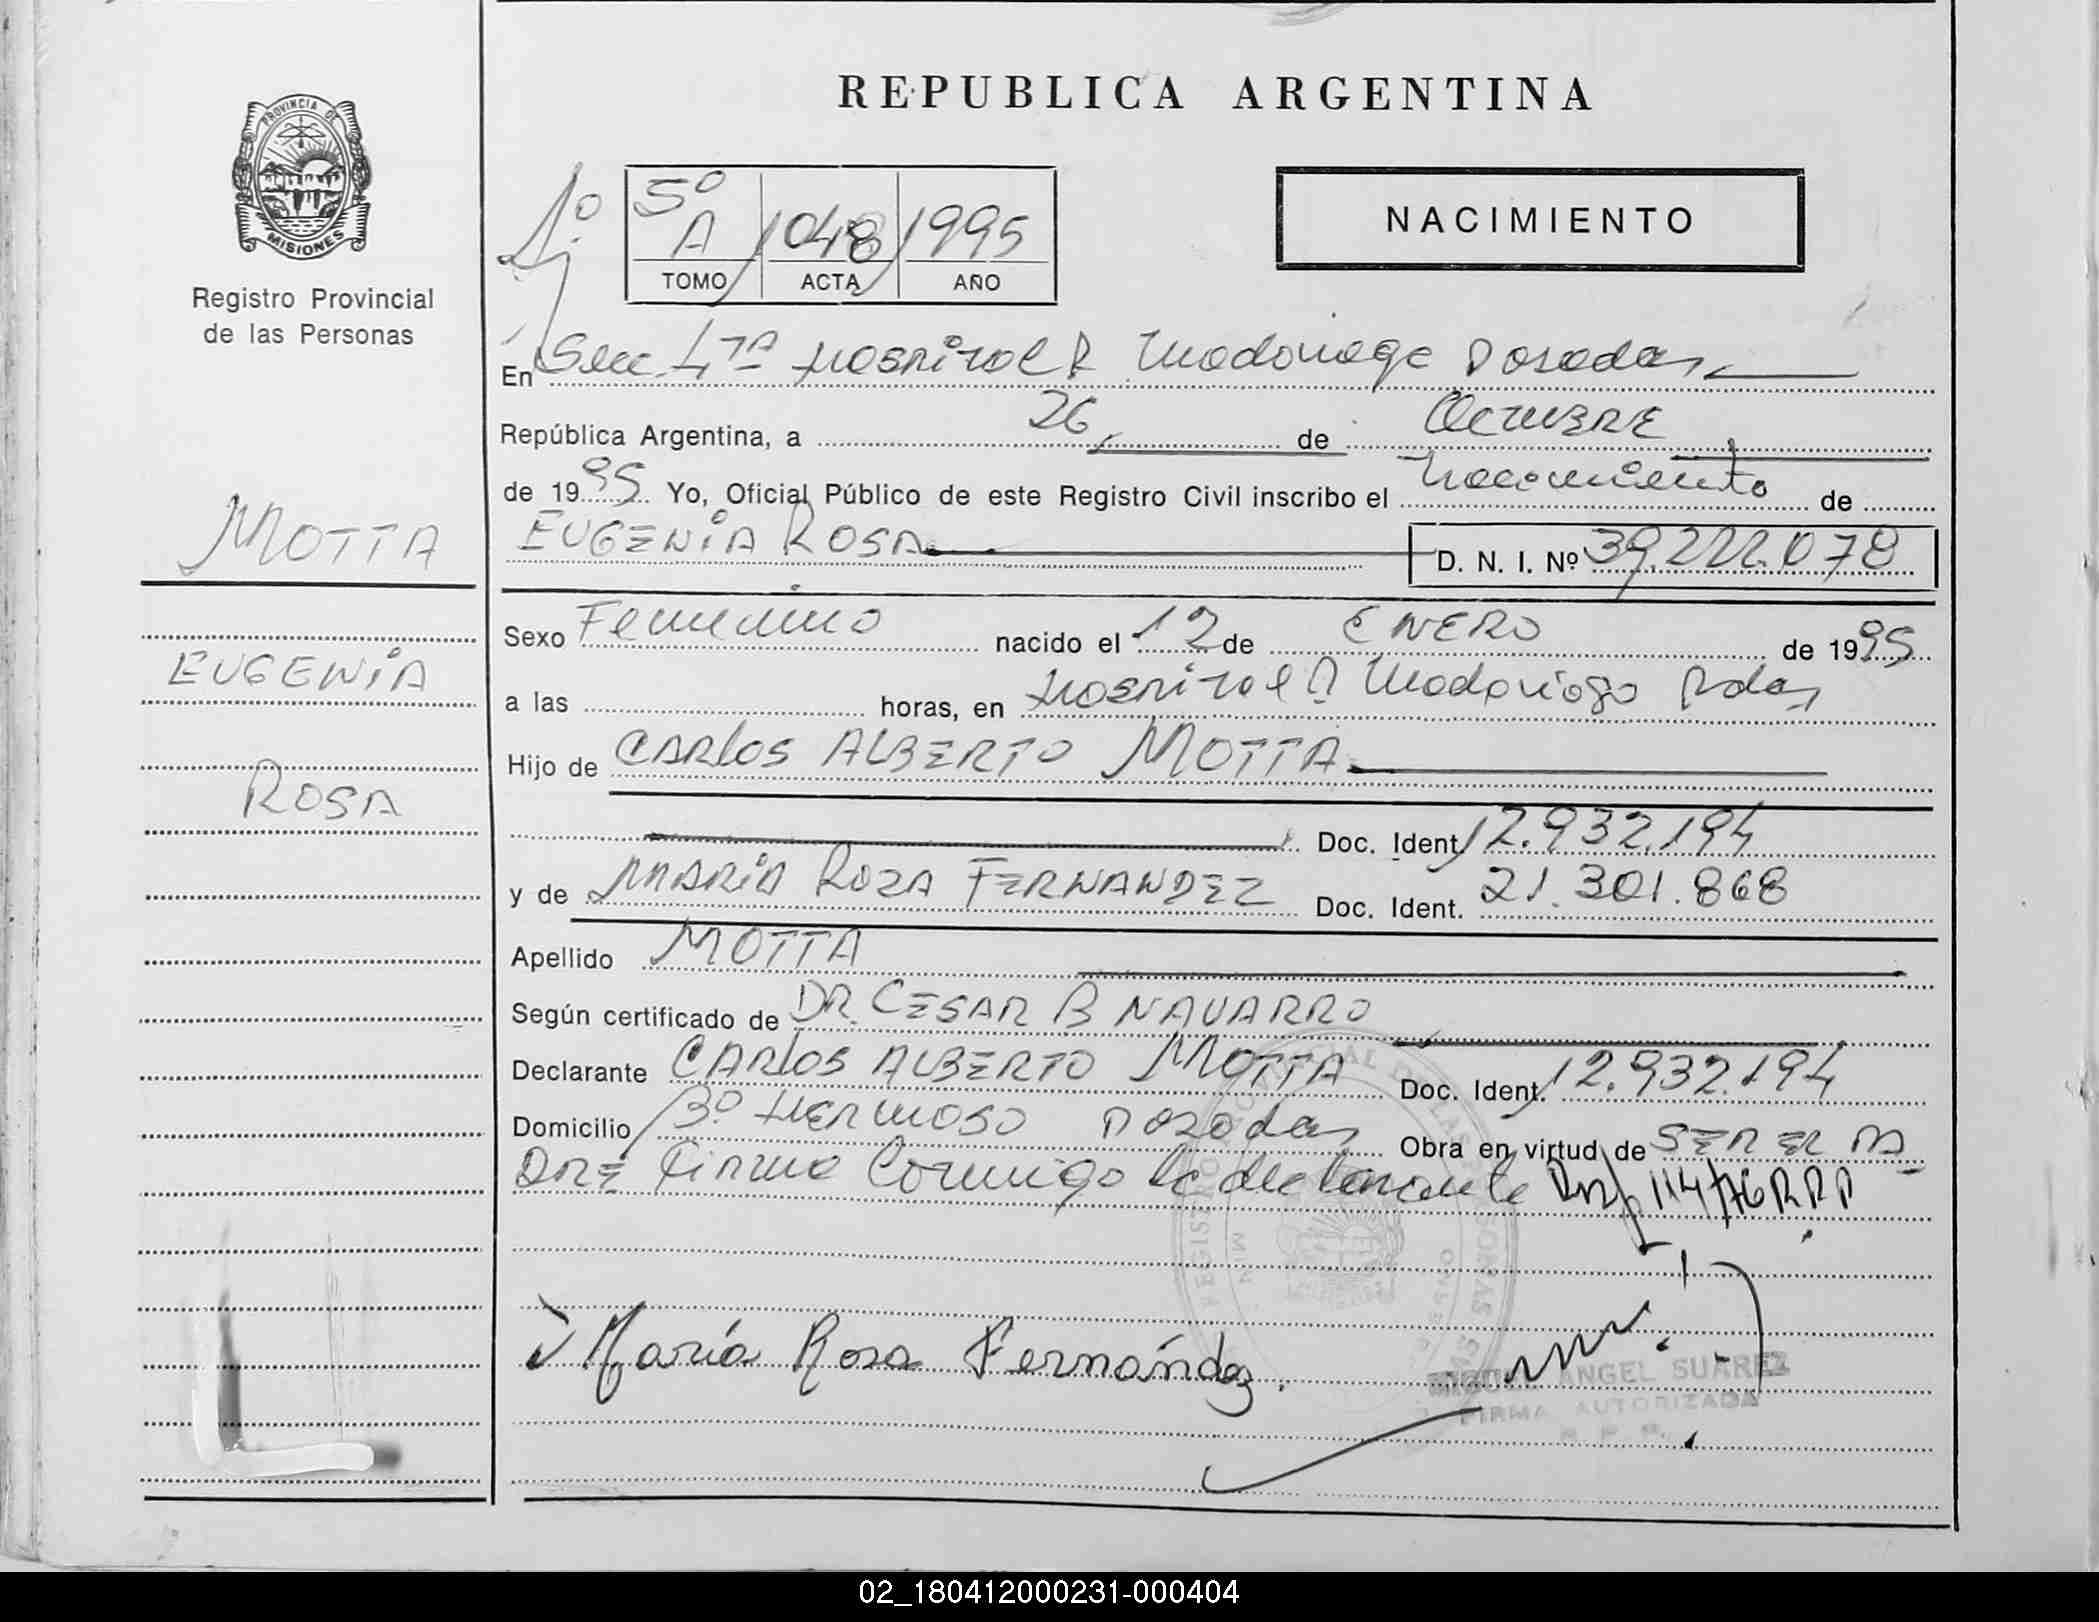 PROVINCIA DE
MISIONES
Registro Provincial
de las Personas
MOTTA
EUGENIA
ROSA
REPUBLICA ARGENTINA
5º
A 1048 1995
TOMO ACTA AÑO
NACIMIENTO
En Secc 4ta Hospital R Madariaga Posadas
República Argentina, a 26 de OCTUBRE
de 1995 Yo, Oficial Público de este Registro Civil inscribo el nacimiento de
EUGENIA ROSA D. N. I. Nº 39.222.078
Sexo Femenino nacido el 12 de ENERO de 1995
a las horas, en Hospital R Madariaga Pdas
Hijo de CARLOS ALBERTO MOTTA
Doc. Ident. 12.932.194
y de MARIA ROSA FERNANDEZ Doc. Ident. 21.301.868
Apellido MOTTA
Según certificado de DR. CESAR B NAVARRO
Declarante CARLOS ALBERTO MOTTA Doc. Ident. 12.932.194
Domicilio Bº HERMOSO Posadas Obra en virtud de SER EL PA
DRE Firma Conmigo la declarante 114/76 RPP
María Rosa Fernández.
MIGUEL ANGEL SUAREZ
FIRMA AUTORIZADA
R. P. P.
02_180412000231-000404